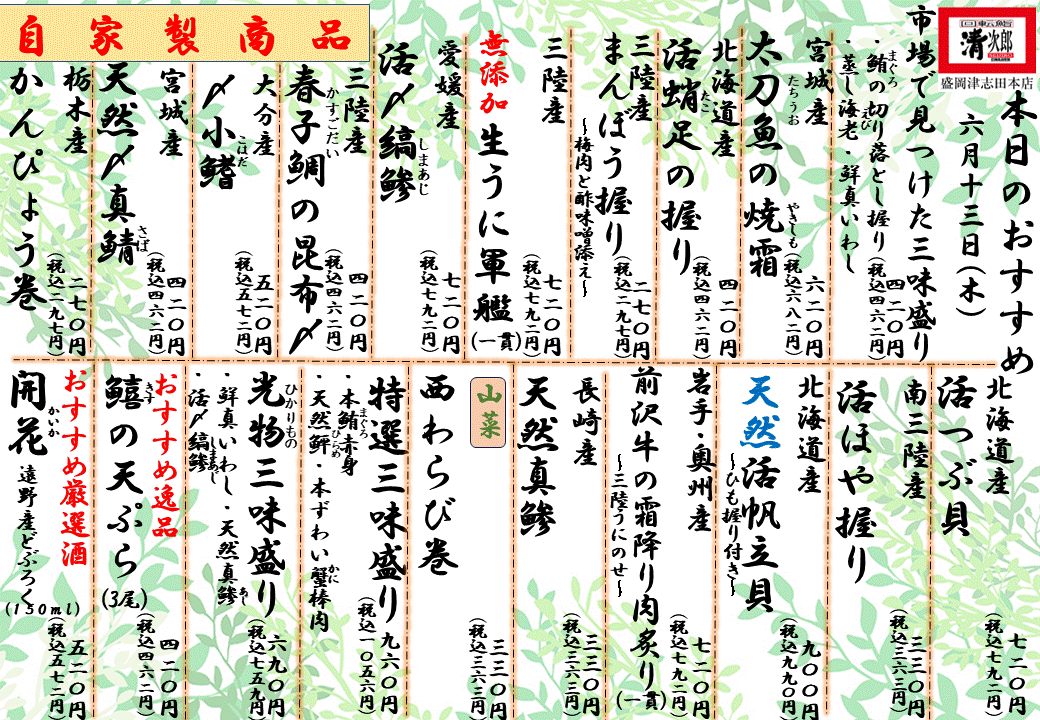 回転鮨
清次郎
SEIJIRO
盛岡津志田本店
本日のおすすめ
六月十三日(木)
市場で見つけた三味盛り
まぐろ
・鮪の切り落とし握り
えび
・蒸し海老・鮮真いわし
四二〇円
(税込四六二円)
宮城産
たちうお
やきしも
太刀魚の焼霜
六二〇円
(税込六八二円)
北海道産
たこ
活蛸足の握り
四二〇円
(税込四六二円)
三陸産
まんぼう握り
~梅肉と酢味噌添え~
二七〇円
(税込二九七円)
三陸産
無添加 生うに軍艦(一貫)
七二〇円
(税込七九二円)
愛媛産
しまあじ
活〆縞鯵
七二〇円
(税込七九二円)
三陸産
かすごだい
春子鯛の昆布〆
四二〇円
(税込四六二円)
大分産
こはだ
〆小鰭
五二〇円
(税込五七二円)
自家製商品
宮城産
さば
天然〆真鯖
四二〇円
(税込四六二円)
栃木産
かんぴょう巻
二七〇円
(税込二九七円)
北海道産
活つぶ貝
七二〇円
(税込七九二円)
南三陸産
活ほや握り
三三〇円
(税込三六三円)
北海道産
天然活帆立貝
~ひも握り付き~
九〇〇円
(税込九九〇円)
岩手・奥州産
前沢牛の霜降り肉炙り(一貫)
~三陸うにのせ~
七二〇円
(税込七九二円)
長崎産
天然真鯵
三三〇円
(税込三六三円)
山菜
西わらび巻
三三〇円
(税込三六三円)
特選三味盛り
まぐろ
・本鮪赤身
ひらめ
かに
・天然鮃・本ずわい蟹棒肉
九六〇円
(税込一〇五六円)
ひかりもの
光物三味盛り
・鮮真いわし・天然真鯵
あじ
しまあじ
・活〆縞鯵
六九〇円
(税込七五九円)
おすすめ逸品
きす
鱚の天ぷら(3尾)
四二〇円
(税込四六二円)
おすすめ厳選酒
かいか
開花 遠野産どぶろく
(150ml)
五二〇円
(税込五七二円)